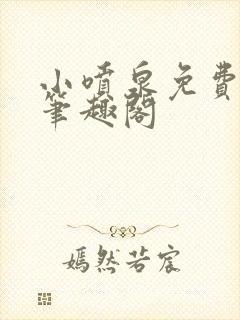 小喷泉免费
笔趣阁
嫣然若宸